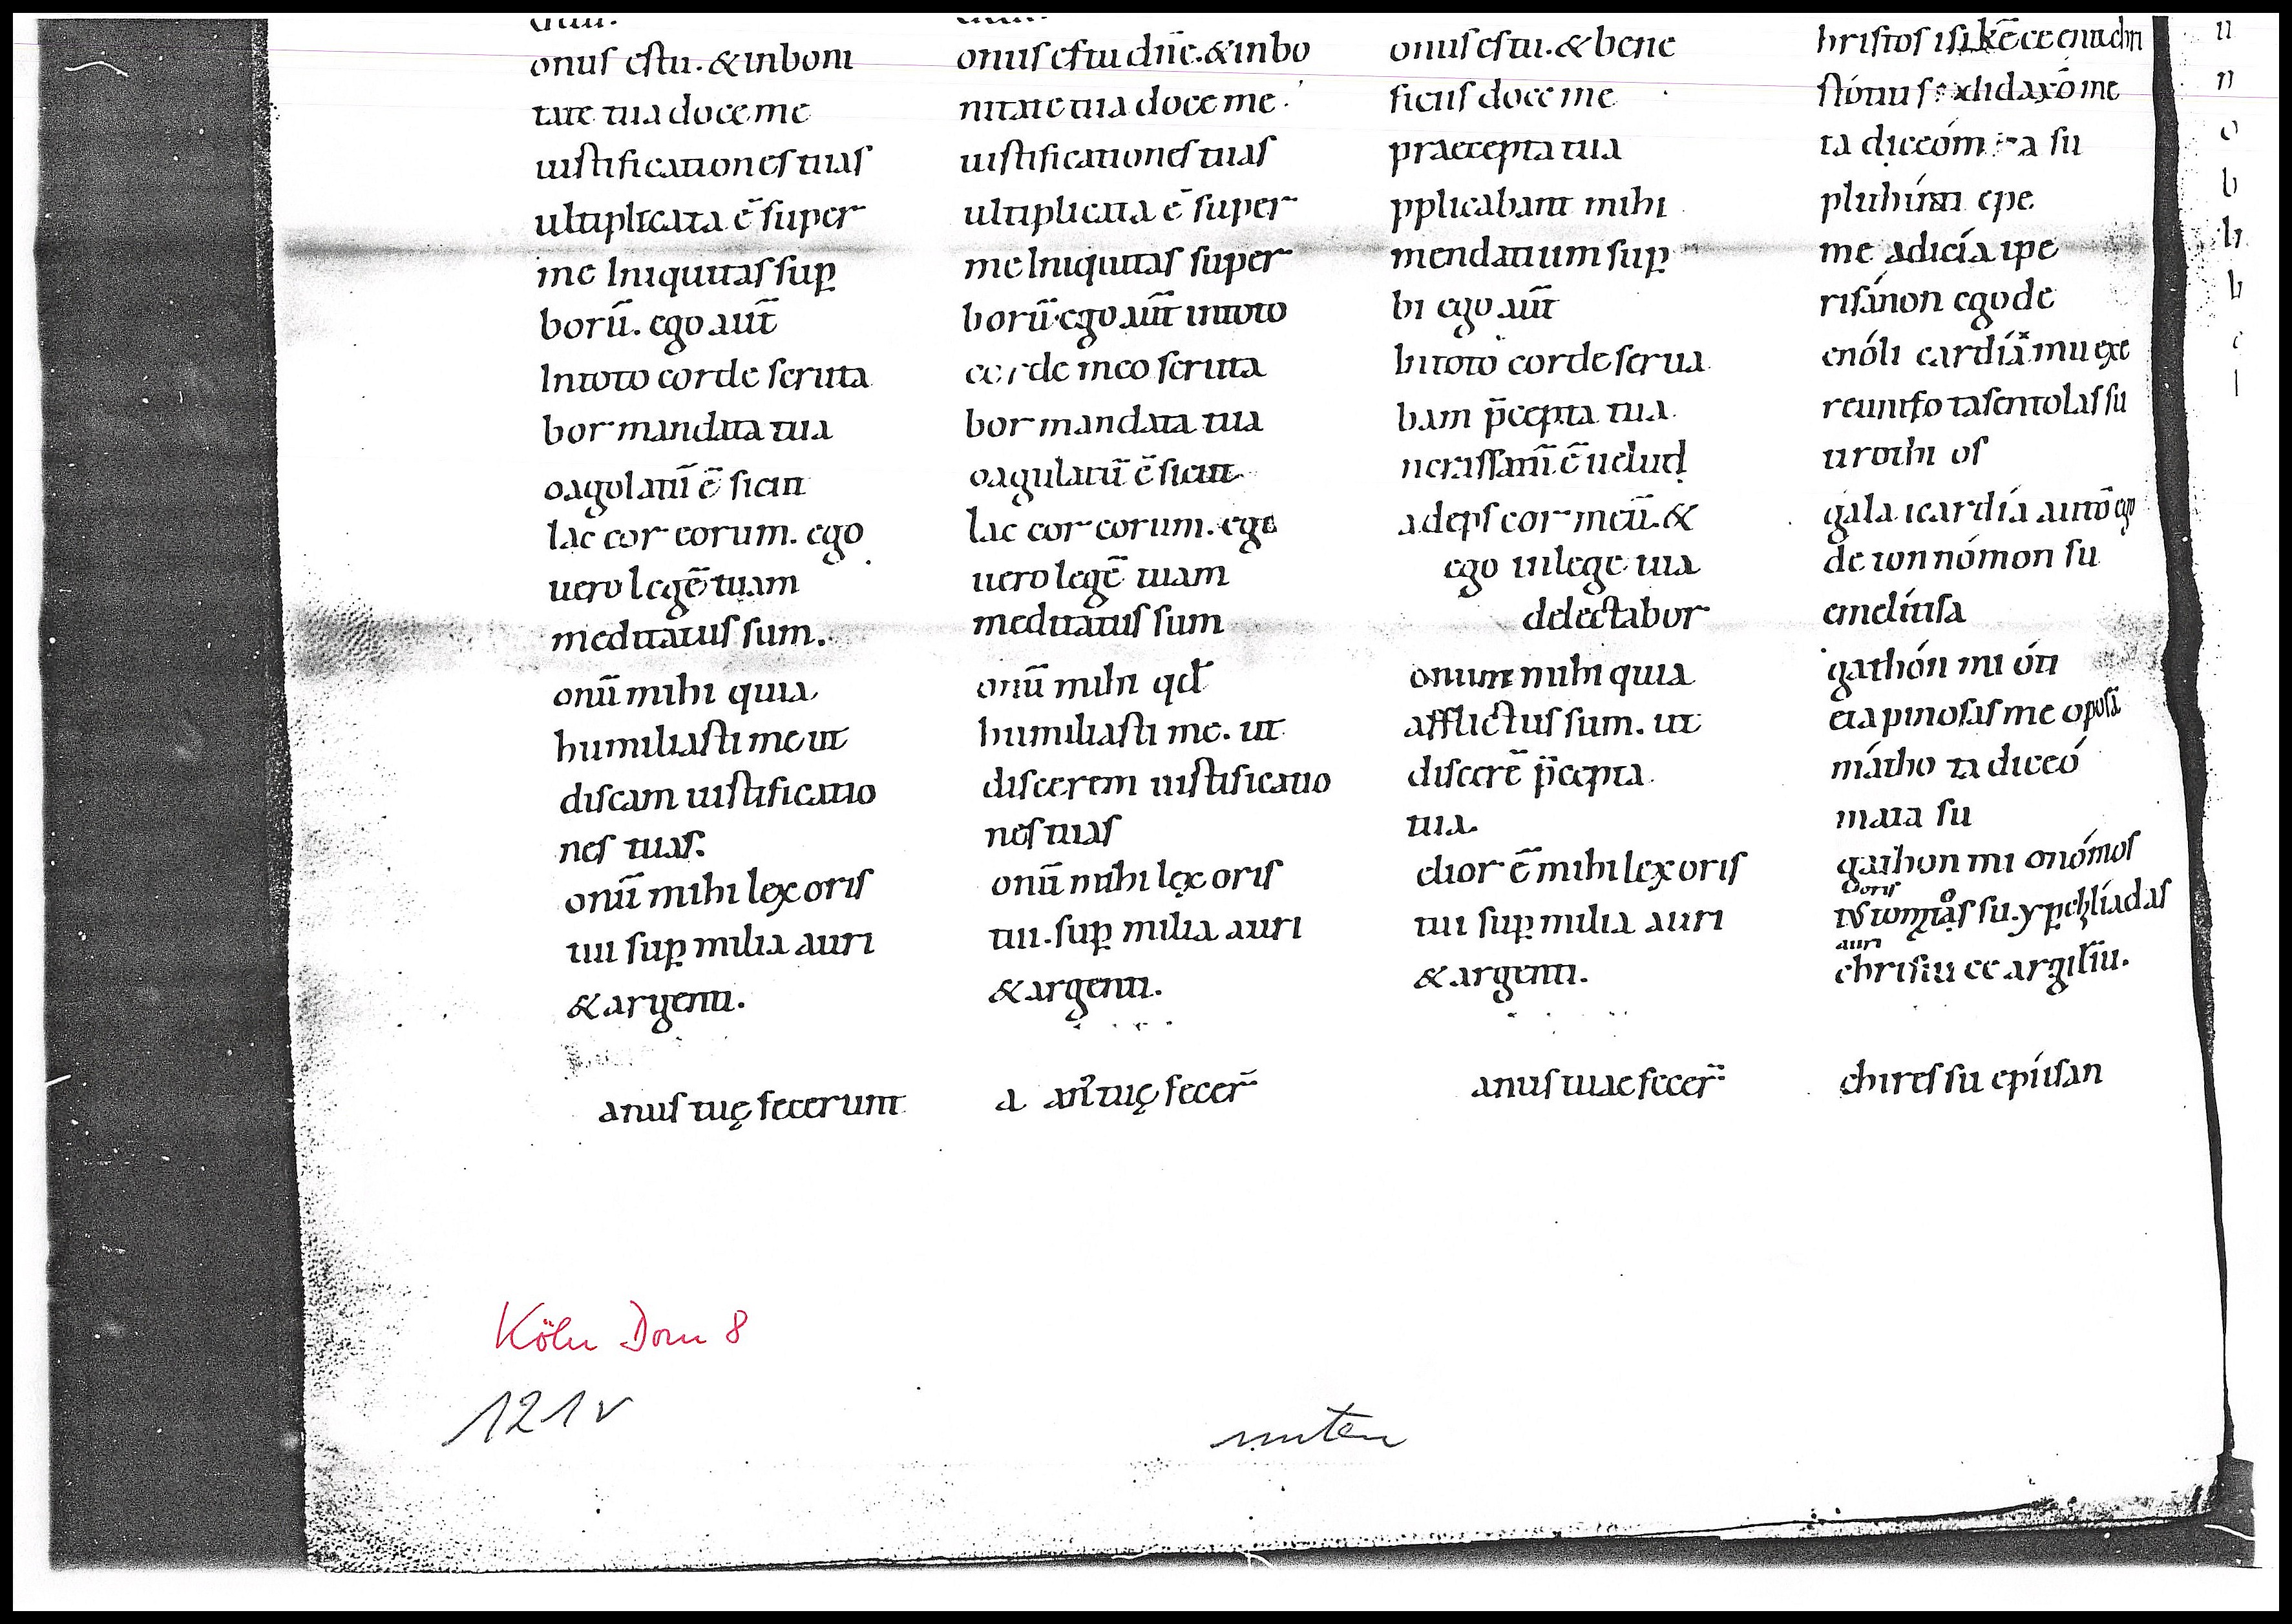 onus estu. & inboni
tate tua doce me
iustificationes tuas
ultiplicata ē super
me Iniquitas sup
borū. ego aut̄
Intoto corde scruta
bor mandata tua
oagolatū ē sicut
lac cor eorum. ego
uero legē tuam
meditatus sum.
onū mihi quia
humiliasti me ut
discam iustificatio
nes tuas.
onū mihi lex oris
tui sup milia auri
& argenti.
anus tuę fecerunt
onus estu dn̄e. & inbo
nitate tua doce me
iustificationes tuas
ultiplicata ē super
me Iniquitas super
borū. ego aut̄ intoto
corde meo scruta
bor mandata tua
oagulatū ē sicut
lac cor eorum. ego
uero legē tuam
meditatus sum
onū mihi qd
humiliasti me. ut
discerem iustificatio
nes tuas
onū mihi lex oris
tui. sup milia auri
& argenti.
a an̄ tuę fecer̄
onus es tu. & bene
ficus doce me
praecepta tua
pplicabant mihi
mendatium sup
bi ego aut̄
In toto corde serua
bam p̄cepta tua
ncrassatū ē uelud
adeps cor meū. &
ego inlege tua
delectabor
onum mihi quia
afflictus sum. ut
discerē p̄cepta
tua.
elior ē mihi lex oris
tui sup milia auri
& argenti.
anus tuae fecer̄
ta diceóm a su
plithinti epe
me adicía ipe
risánon egode
enóli cardía mu exe
reuniso tasentolas su
urothi os
gala icardía autō ego
de tonnómon su
emelítisa
gathón mi óti
etapinosas me opos
mátho ta diceó
mata su
gathon mi onómos
oris
su. yperchlíadas
auri
chrisíu ce argiríu.
chires su epíisan
Köln Dom 8
121v
unten